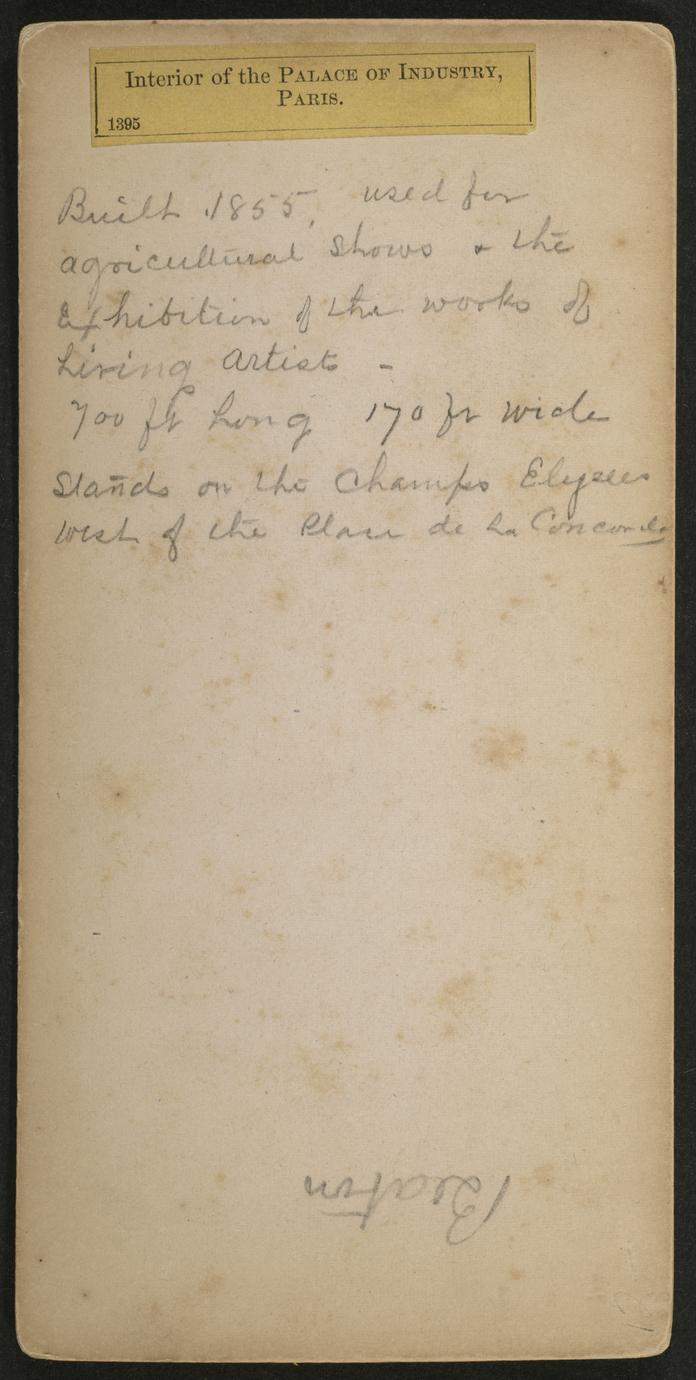 Interior of the PALACE OF INDUSTRY,
PARIS.
1395
Built 1855, used for
agricultural shows & the
Exhibition of the works of
Living Artists -
700 ft Long 170 ft wide
Stands on the Champs Elysees
West of the Place de La Concorde